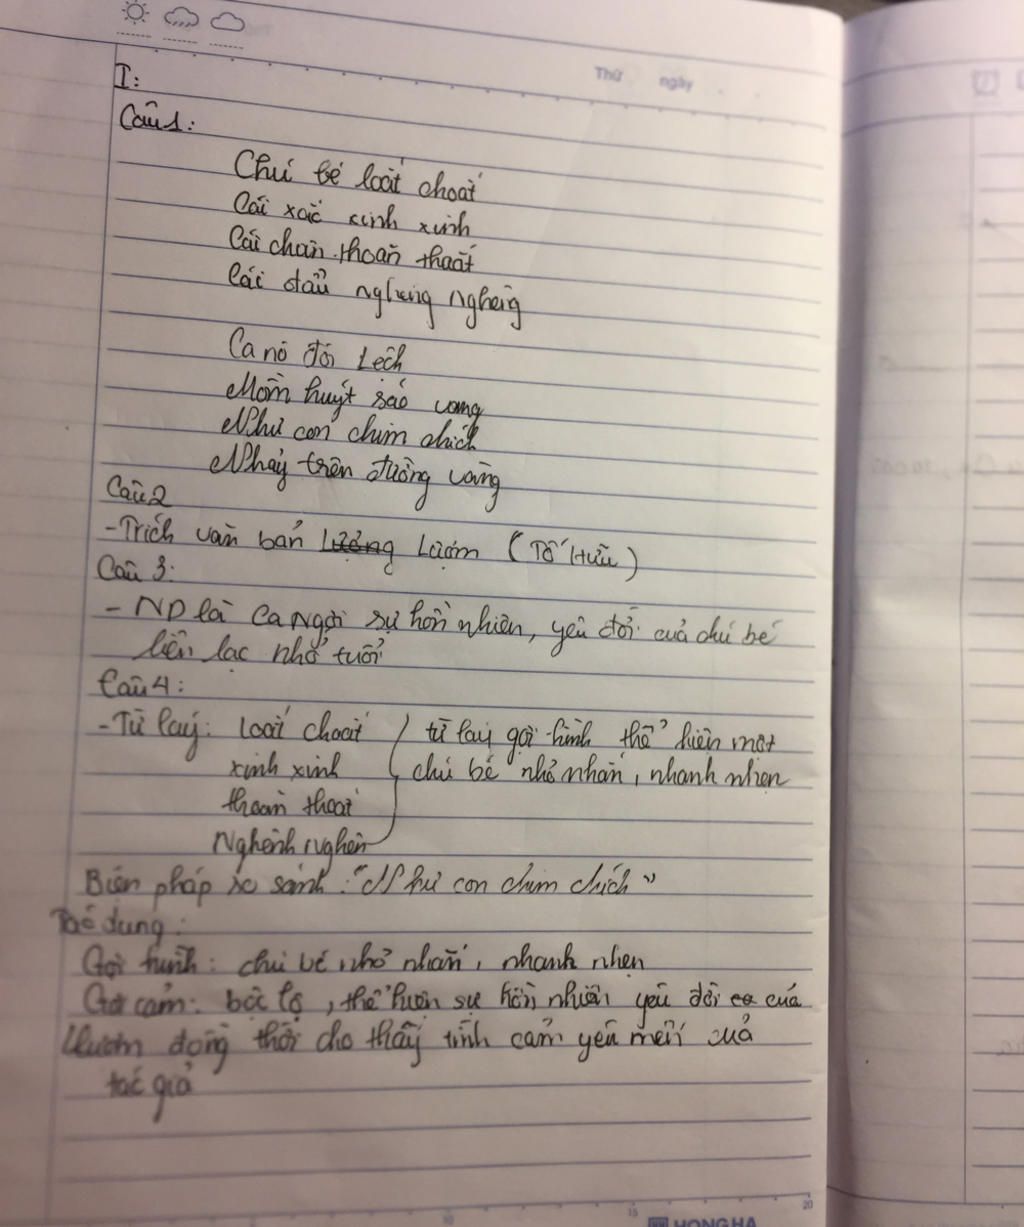 Thứ ngày
I:
Câu 1:
Chú bé loắt choắt
Cái xắc xinh xinh
Cái chân thoăn thoắt
Cái đầu nghênh nghênh
Ca nô đội Lệch
Mồm huýt sáo vang
Như con chim chích
Nhảy trên đường vàng
Câu 2
- Trích văn bản Lượng Lượm (Tố Hữu)
Câu 3:
- ND là Ca Ngợi sự hồn nhiên, yêu đời của chú bé
liên lạc nhỏ tuổi
Câu 4:
- Từ láy: loắt choắt từ láy gợi hình thể hiện một
xinh xinh chú bé nhỏ nhắn, nhanh nhẹn
thoăn thoắt
Nghênh nghên
Biện pháp so sánh: "Như con chim chích"
Tác dụng:
Gợi hình: chú bé nhỏ nhắn, nhanh nhẹn
Gợi cảm: bộc lộ, thể hiện sự hồn nhiên yêu đời của
Lượm đồng thời cho thấy tình cảm yêu mến của
tác giả
10 15 20
HONG HA